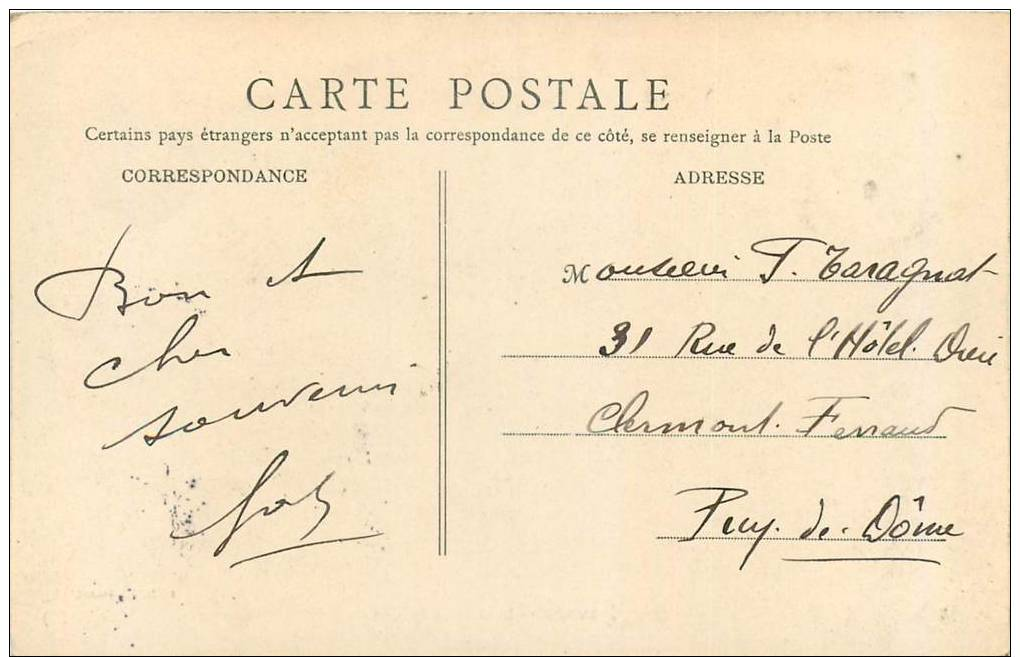 CARTE POSTALE
Certains pays étrangers n'acceptant pas la correspondance de ce côté, se renseigner à la Poste
CORRESPONDANCE
ADRESSE
Bon et
cher
souvenir
Monsieur T. Taragnat
31 Rue de l'Hôtel. Dieu
Clermont. Ferrand
Puy. de. Dôme